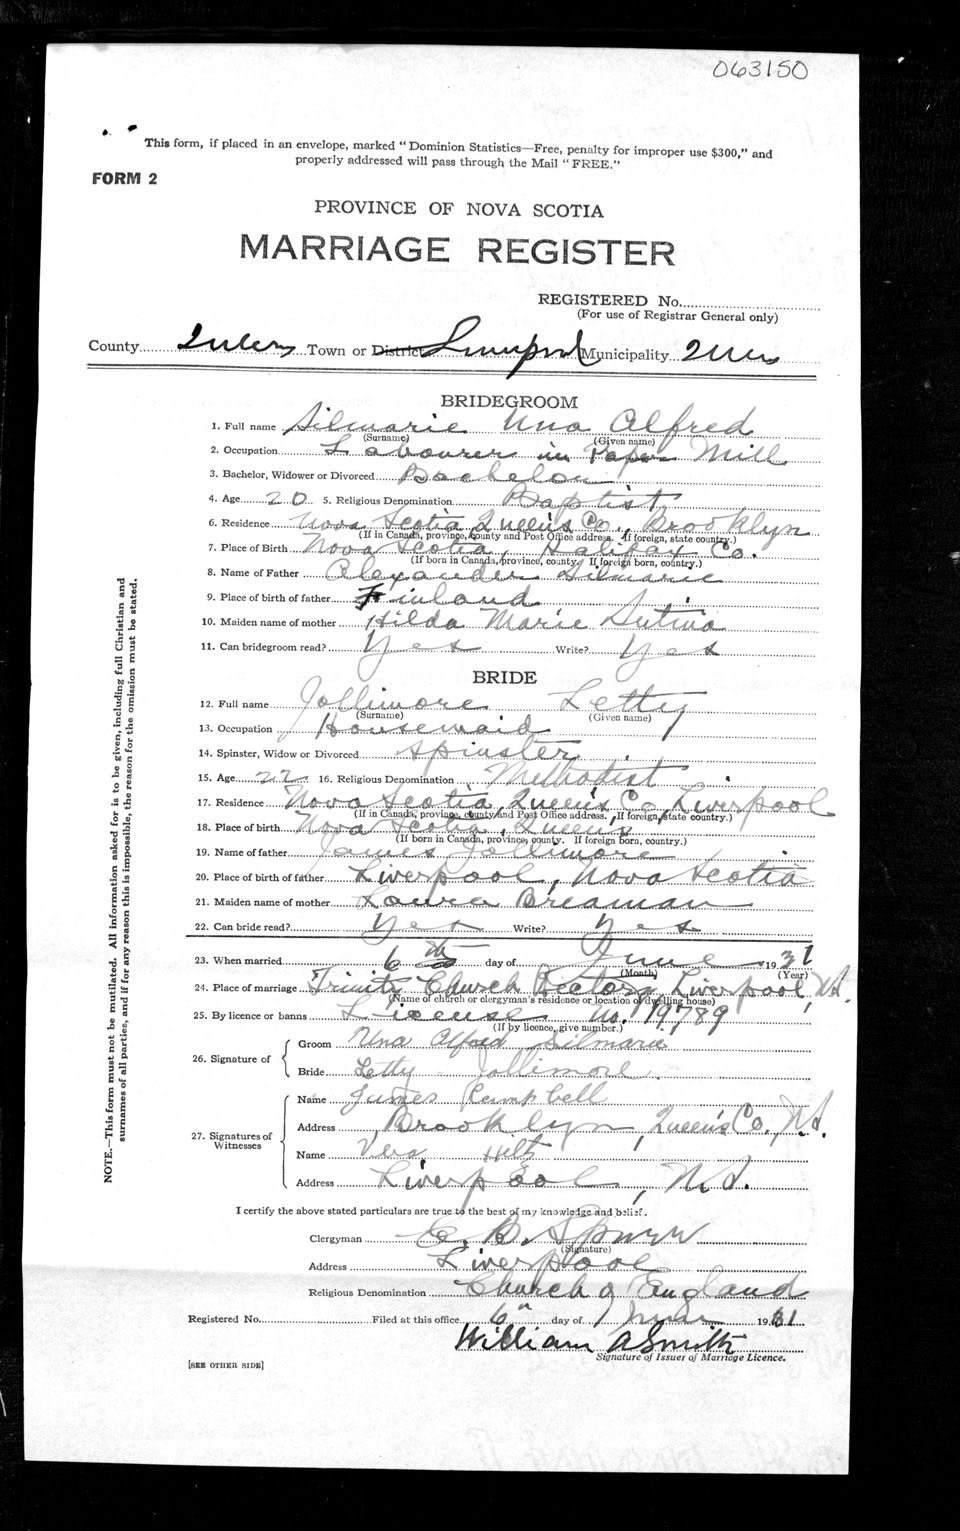 063150
This form, if placed in an envelope, marked "Dominion Statistics—Free, penalty for improper use $300," and
properly addressed will pass through the Mail "FREE."
FORM 2
PROVINCE OF NOVA SCOTIA
MARRIAGE REGISTER
REGISTERED No.
(For use of Registrar General only)
County Queens Town or District Liverpool Municipality Queens
BRIDEGROOM
1. Full name Silmarie Una Alfred
(Surname) (Given name)
2. Occupation Labourer in Paper Mill
3. Bachelor, Widower or Divorced Bachelor
4. Age 20 5. Religious Denomination Baptist
6. Residence Nova Scotia, Queens Co., Brooklyn
(If in Canada, province, county and Post Office address. If foreign, state country.)
7. Place of Birth Nova Scotia, Halifax Co.
(If born in Canada, province, county. If foreign born, country.)
8. Name of Father Alexander Silmarie
9. Place of birth of father Finland
10. Maiden name of mother Hilda Marie Sutina
11. Can bridegroom read? Yes Write? Yes
BRIDE
12. Full name Jollimore Letty
(Surname) (Given name)
13. Occupation Housemaid
14. Spinster, Widow or Divorced Spinster
15. Age 22 16. Religious Denomination Methodist
17. Residence Nova Scotia, Queens Co, Liverpool
(If in Canada, province, county and Post Office address. If foreign, state country.)
18. Place of birth Nova Scotia, Queens
(If born in Canada, province, county. If foreign born, country.)
19. Name of father James Jollimore
20. Place of birth of father Liverpool, Nova Scotia
21. Maiden name of mother Laura Breaman
22. Can bride read? Yes Write? Yes
23. When married 6th day of June 1931
(Month) (Year)
24. Place of marriage Trinity Church Rectory, Liverpool, N.S.
(Name of church or clergyman's residence or location of dwelling house)
25. By licence or banns License No. 19789
(If by licence, give number.)
26. Signature of
Groom Una Alfred Silmarie
Bride Letty Jollimore
27. Signatures of Witnesses
Name James Kempbell
Address Brooklyn, Queens Co., N.S.
Name Vera Hilts
Address Liverpool, N.S.
I certify the above stated particulars are true to the best of my knowledge and belief.
Clergyman C. B. Spurr
(Signature)
Address Liverpool
Religious Denomination Church of England
Registered No. Filed at this office 6th day of June 1931
William A Smith
Signature of Issuer of Marriage Licence.
[SEE OTHER SIDE]
NOTE.—This form must not be mutilated. All information asked for is to be given, including full Christian and
surnames of all parties, and if for any reason this is impossible, the reason for the omission must be stated.